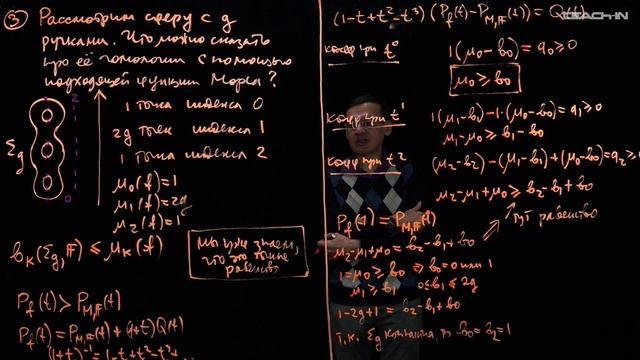 ③ Рассмотрим сферу с g
ручками. Что можно сказать
про её гомологии с помощью
подходящей функции Морса?
Σg
2
0
1 точка индекса 0
2g точек индекса 1
1 точка индекса 2
μ₀(f)=1
μ₁(f)=2g
μ₂(f)=1
bₖ(Σg, 𝔽) ≤ μₖ(f)
мы уже знаем,
что это точные
равенства
P_f(t) > P_{M,𝔽}(t)
P_f(t) = P_{M,𝔽}(t) + (1+t)Q(t)
(1+t)⁻¹ = 1-t+t²-t³...
TEACH-IN
(1-t+t²-t³)(P_f(t) - P_{M,𝔽}(t)) = Q(t)
Коэф при t⁰
1(μ₀-b₀) = q₀ ≥ 0
μ₀ ≥ b₀
Коэф при t¹
1(μ₁-b₁) - 1·(μ₀-b₀) = q₁ ≥ 0
μ₁-μ₀ ≥ b₁-b₀
Коэф при t²
(μ₂-b₂) - (μ₁-b₁) + (μ₀-b₀) = q₂ ≥
μ₂-μ₁+μ₀ ≥ b₂-b₁+b₀
тут равенство
P_f(1) = P_{M,𝔽}(1)
μ₂-μ₁+μ₀ = b₂-b₁+b₀
1 = μ₀ ≥ b₀ ⇒ b₀ = 0 или 1
μ₁ ≥ b₁ 0 ≤ b₁ ≤ 2g
1-2g+1 = b₂-b₁+b₀
Т.к. Σg компактна, то b₀ = b₂ = 1